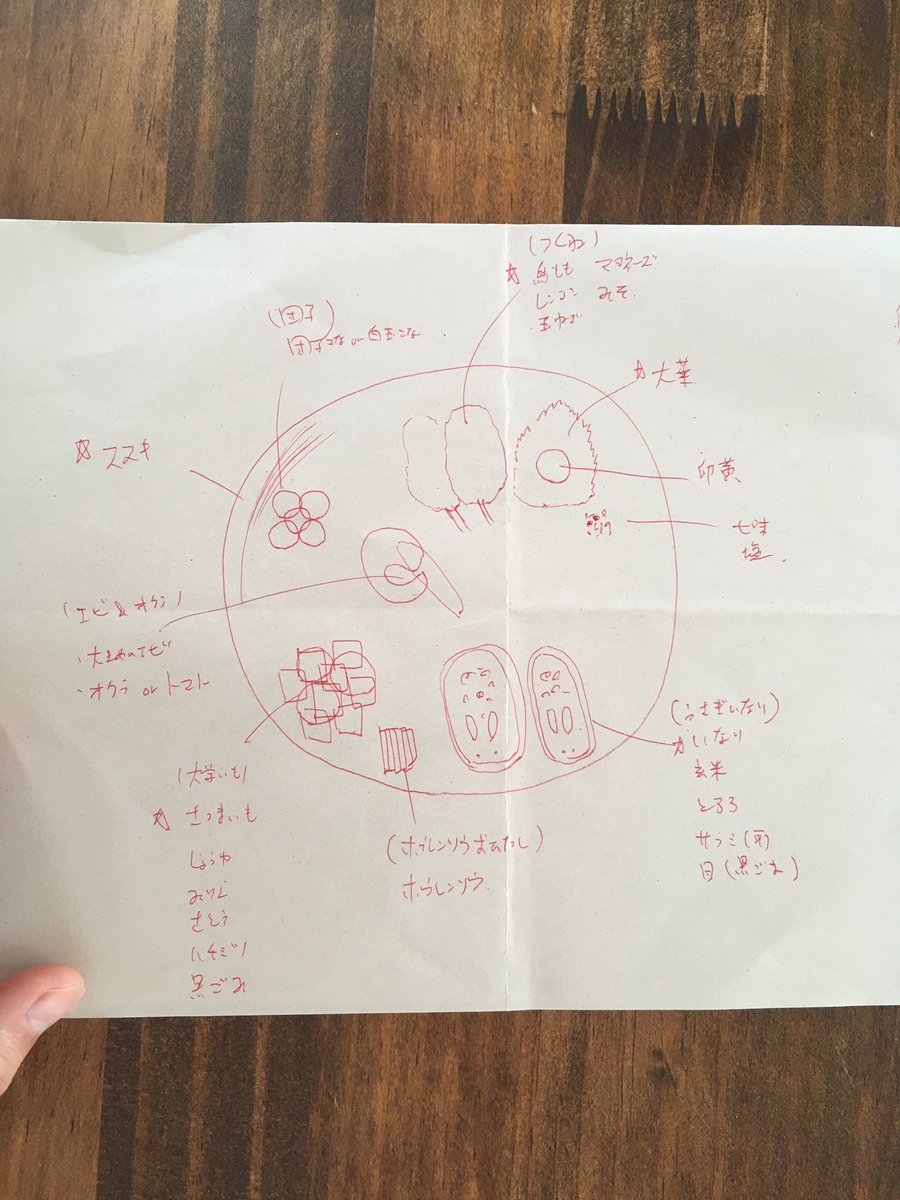 (つくね)
☆ 鳥もも マヨネーズ
レンコン みそ
玉ねぎ
(団子)
団子こな or 白玉こな
☆大葉
☆ ススキ
卵黄
七味
塩
(エビ&オクラ)
・大きめのエビ
・オクラ or トマト
(うさぎいなり)
☆いなり
玄米
とろろ
サラミ(耳)
目(黒ごま)
(大学いも)
☆ さつまいも
しょうゆ
みりん
さとう
ハチミツ
黒ごま
(ホウレンソウおひたし)
ホウレンソウ